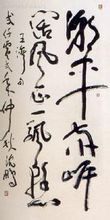 潮平两岸
阔风正一帆悬
王湾句
年仲秋